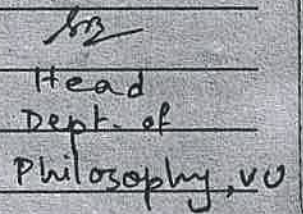 Head
Dept. of
Philosophy, VU